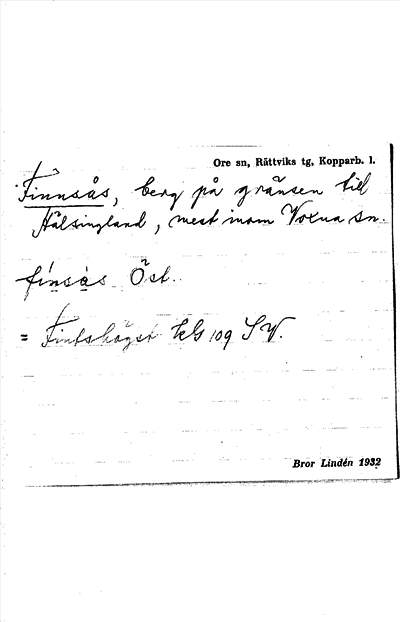 Ore sn, Rättviks tg, Kopparb. l.
Finnsås, berg på gränsen till
Hälsingland, mest inom Voxna sn.
fìnsås Öst.
= kbl 109 SV.
Bror Lindén 1932